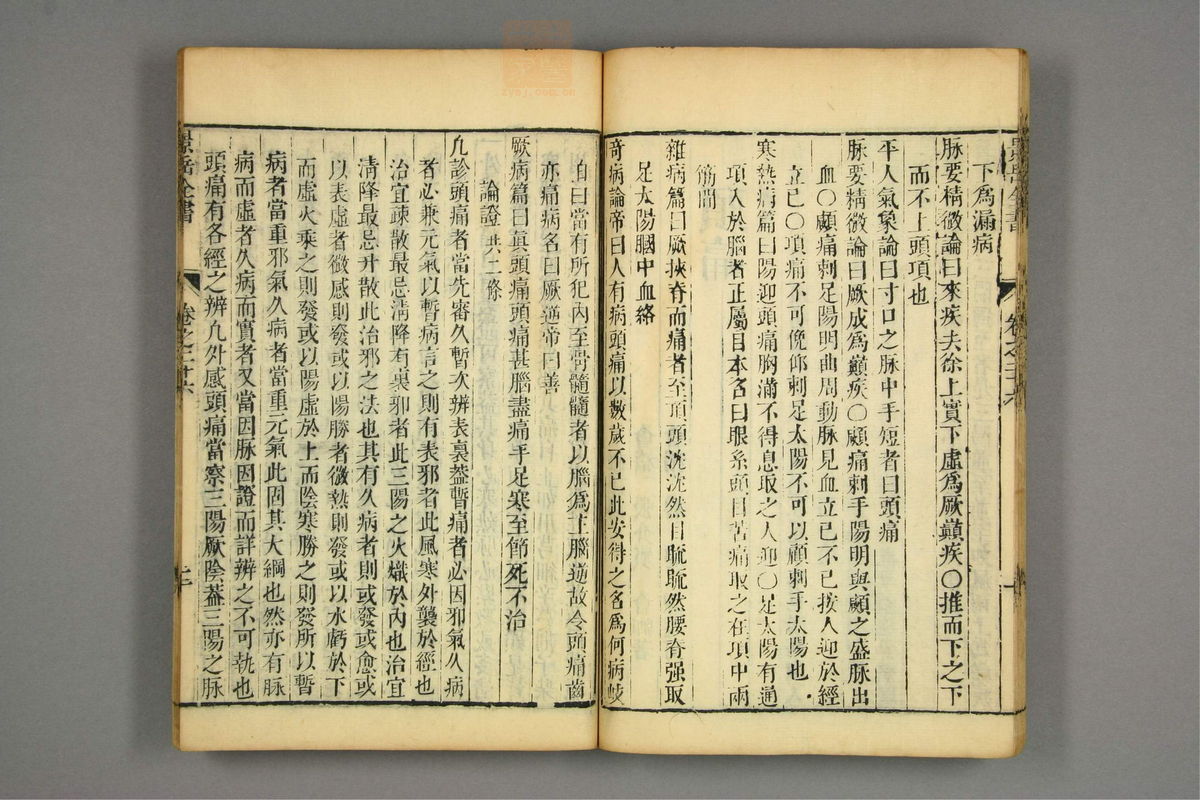 下爲漏病
脉要精微論曰來疾去徐上實下虛爲厥巓疾○推而下之下
而不上頭項也
平人氣象論曰寸口之脉中手短者曰頭痛
脉要精微論曰厥成爲巓疾○顑痛刺手陽明與顑之盛脉出
血○顑痛刺足陽明曲周動脉見血立已不已按人迎於經
立已○項痛不可俛仰刺足太陽不可以顧刺手太陽也
寒熱病篇曰陽迎頭痛胸滿不得息取之人迎○足太陽有通
項入於腦者正屬目本名曰眼系頭目苦痛取之在項中兩
筋間
雜病篇曰厥挾脊而痛者至頂頭沈沈然目䀮䀮然腰脊强取
足太陽膕中血絡
奇病論帝曰人有病頭痛以數歲不已此安得之名爲何病岐
伯曰當有所犯內至骨髓髓者以腦爲主腦逆故令頭痛齒
亦痛病名曰厥逆帝曰善
厥病篇曰眞頭痛頭痛甚腦盡痛手足寒至節死不治
論證 共二條
凡診頭痛者當先審久暫次辨表裏葢暫痛者必因邪氣久病
者必兼元氣以暫病言之則有表邪者此風寒外襲於經也
治宜疎散最忌淸降有裏邪者此三陽之火熾於內也治宜
淸降最忌升散此治邪之法也其有久病者則或發或愈或
以表虛者微感則發或以陽勝者微熱則發或以水虧於下
而虛火乘之則發或以陽虛於上而陰寒勝之則發所以暫
病者當重邪氣久病者當重元氣此固其大綱也然亦有脉
病而虛者久病而實者又當因脉因證而詳辨之不可執也
頭痛有各經之辨凡外感頭痛當察三陽厥陰葢三陽之脉
景岳全書
卷之二十六
二